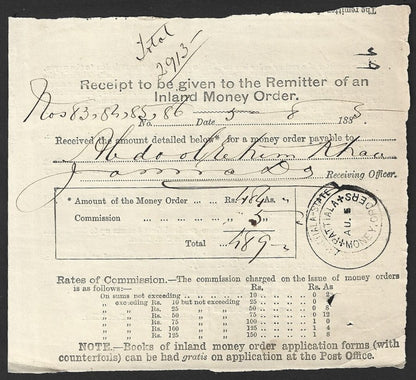 The remitter
Total
29/3-
Receipt to be given to the Remitter of an
Inland Money Order.
Nos 83, 84, 85, 86
No. Date 5 8 1885
Received the amount detailed below* for a money order payable to
Khan
Receiving Officer.
* Amount of the Money Order ... Rs. 484 As. "
Commission ... ... ... ... " 5 "
Total ... 489 - "
PATIALA STATE
PATTIALA
MONEY ORDER
AU. 5
Rates of Commission.—The commission charged on the issue of money orders
is as follows:— Rs. Rs. As
On sums not exceeding ... ... ... ... 10 ... ... 0 2
" exceeding Rs. 10 but not exceeding 25 ... ... 0 4
" " Rs. 25 " " 50 ... ... 0 8
" " Rs. 50 " " 75 ... ... 0 12
" " Rs. 75 " " 100 ... ... 1 0
" " Rs. 100 " " 125 ... ... 1 4
" " Rs. 125 " " 150 ... ... 1 8
NOTE.—Books of inland money order application forms (with
counterfoils) can be had gratis on application at the Post Office.